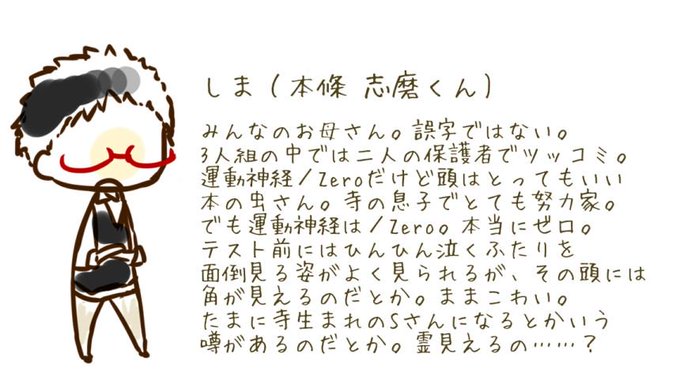 しま（本條 志磨くん）
みんなのお母さん。誤字ではない。
3人組の中では二人の保護者でツッコミ。
運動神経/Zeroだけど頭はとってもいい
本の虫さん。寺の息子でとても努力家。
でも運動神経は/Zero。本当にゼロ。
テスト前にはひんひん泣くふたりを
面倒見る姿がよく見られるが、その頭には
角が見えるのだとか。ままこわい。
たまに寺生まれのSさんになるとかいう
噂があるのだとか。霊見えるの……？